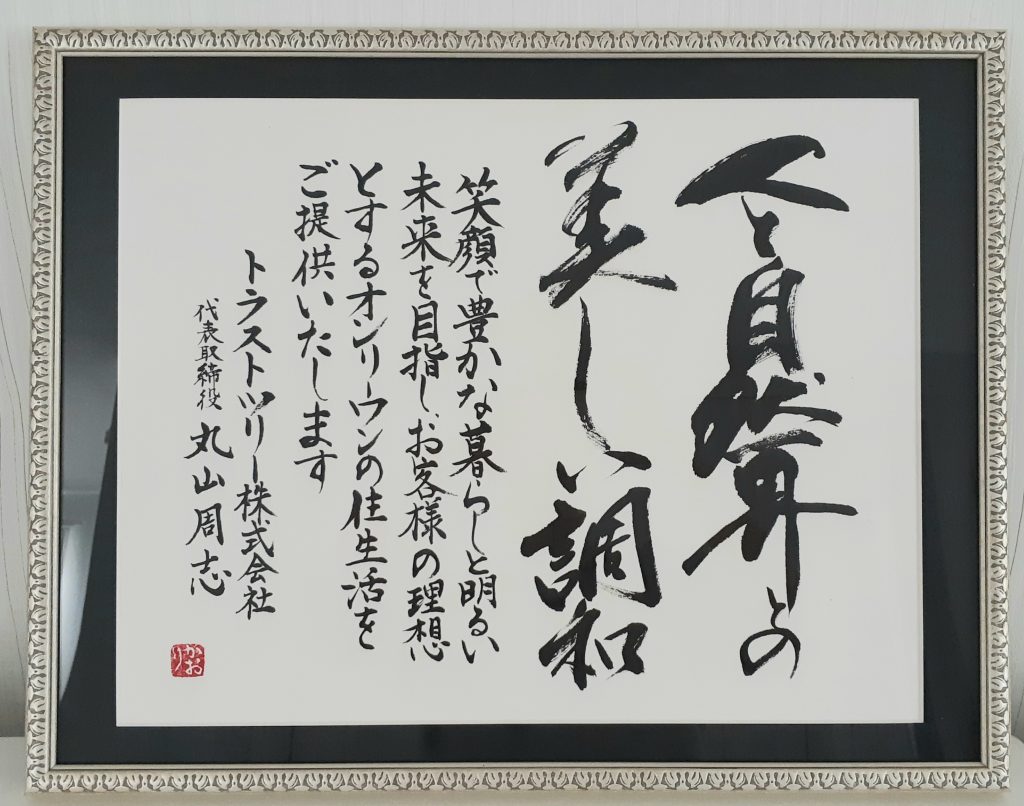 人と自然界との
美しい調和
笑顔で豊かな暮らしと明るい
未来を目指し、お客様の理想
とするオンリーワンの住生活を
ご提供いたします
トラストツリー株式会社
代表取締役 丸山周志
かおり